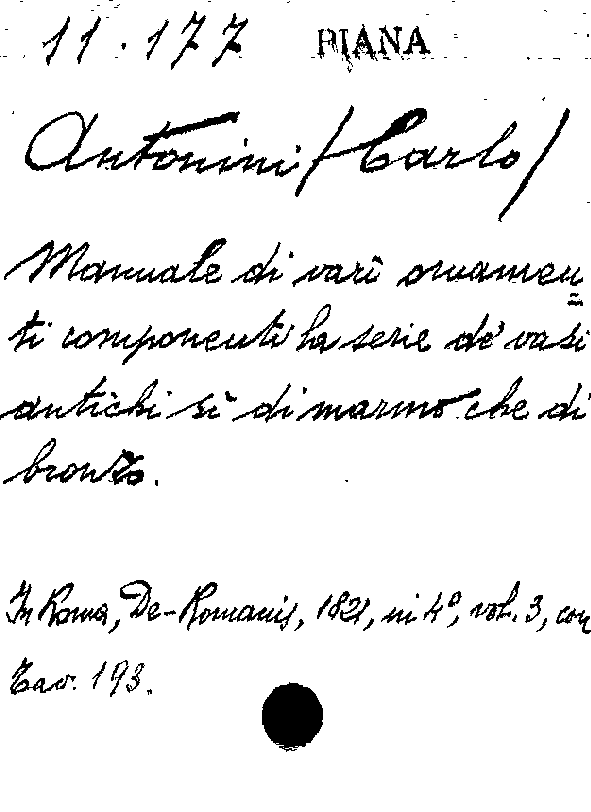 11.177 PIANA
Antonini (Carlo)
Manuale di varî ornamen
ti componenti la serie de' vasi
antichi sì di marmo che di
bronzo.
In Roma, De-Romanis, 1821, in 4º, vol. 3, con
Tav. 193.